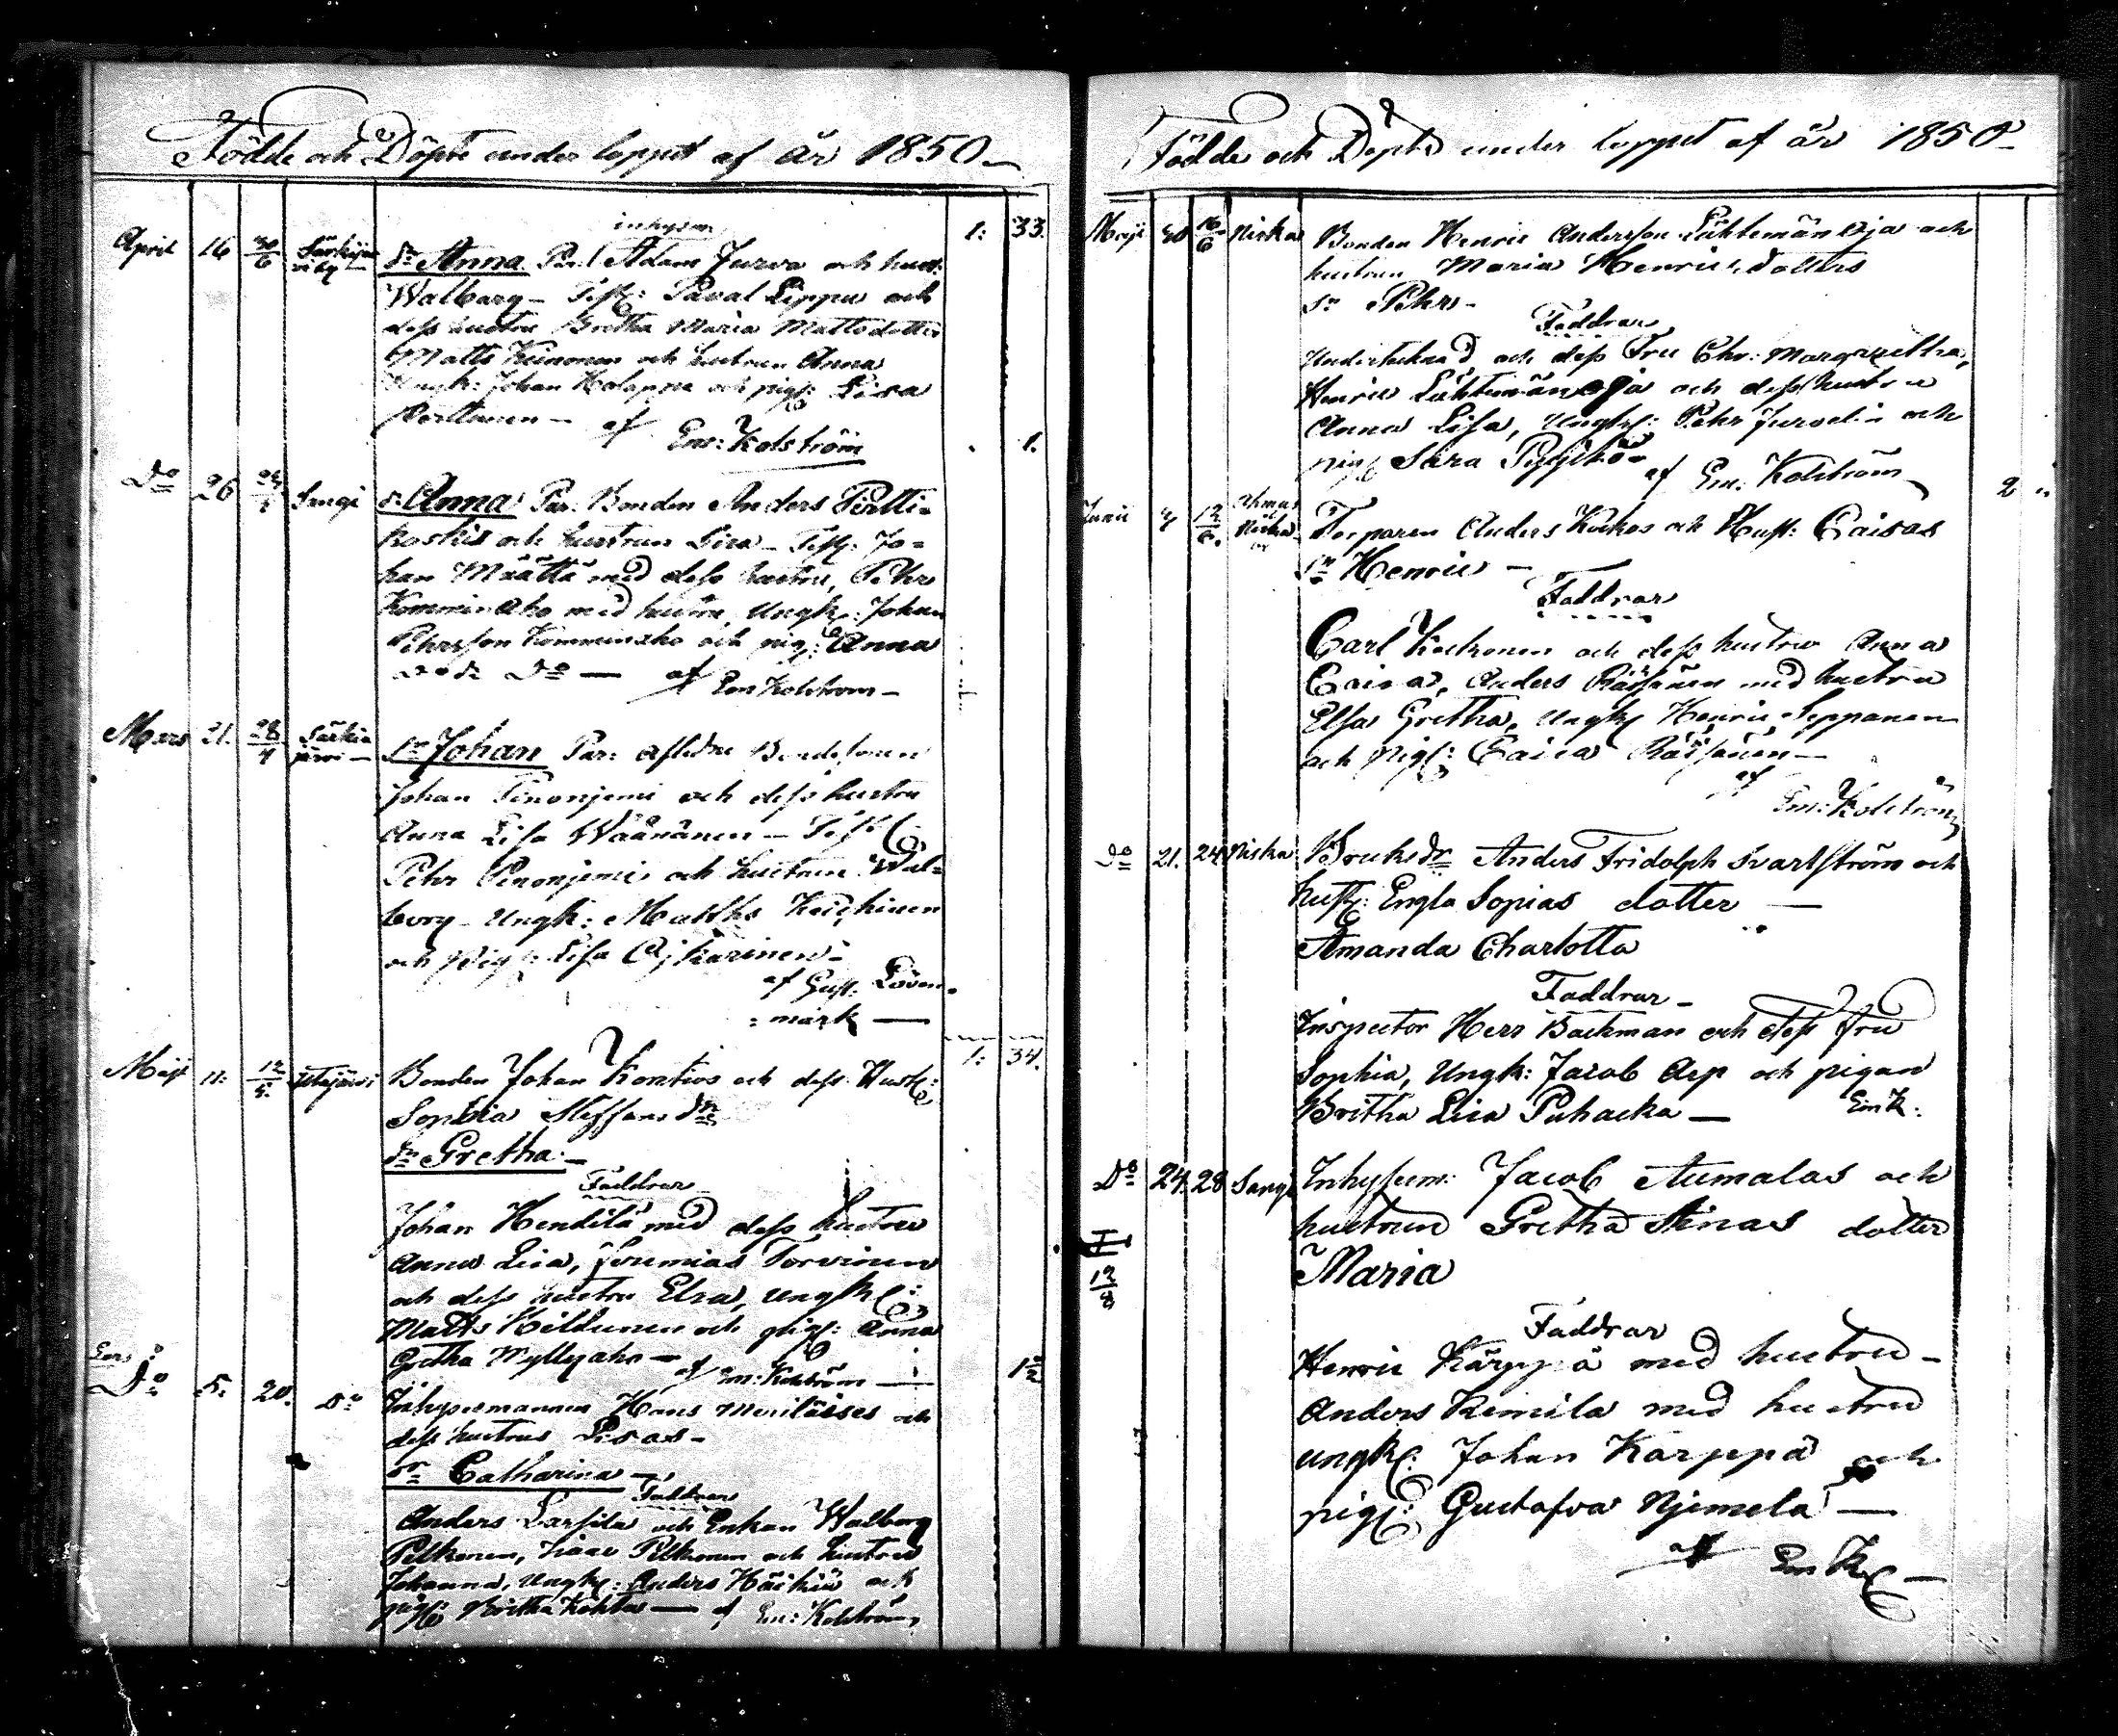 Födde och Döpte under loppet af år 1850
inhysm
1: 33.
April 16 30/6 Särkijärvi by
dr Anna Par: Adam Jurva och hust:
Walborg – Test: Paval Lippu och
dess hustru Gretha Maria Mattsdotter
Matts Keinonen och hustrun Anna
Ungk: Johan Holappa och pig: Lisa
af Em: Kolström
1.
Do 26 Sangi
dr Anna Par: Bonden Anders Pertti-
koskis och hustrun Lisa – Test: Jo-
han Määttä med dess hustru, Pehr
Komminaho med hustru, Ungk: Johan
Pehrsson Komminaho och pig: Anna
Do – af Em Kolström –
Mars 21. 28/4 Särkijärvi –
sn Johan Par: aflidne Bondesonen
Johan Pinonjemi och dess hustru
Anna Lisa Wäänänen – Test:
Pehr Pinonjemi och hustrun Wal-
borg – Ungk: Matths Keickinen
och Pig: Lisa Ojkarinen –
af Gust: Löven-
mark —
1: 34.
Maji 11. 12/5.
Bonden Johan Kontios och dess Hust:
Sophia Steffansdr
dr Gretha –
Faddrar
Johan Hendilä med dess hustru
Anna Lisa, Jeremias Torvinen
och dess hustru Elsa, ungk:
Matts Kildunen och pig: Anna
Gretha Myllyaho — af Em: Kolström —
1/2
Do 5. 20. Do
Inhysesmannen Hans Meriläises och
dess hustrus Lisas –
dr Catharina —
Faddrar
Anders Larsila och Enkan Walborg
Pelkonen, Isaac Pelkonen och hustrun
Johanna, Ungk: Anders Häikiö och
pig: Britha Kohta — af Em: Kolström
Födde och Döpte under loppet af år 1850
Maji 30 16/6 Niska
Bonden Henric Andersson Lähtemänoja och
hustrun Maria Henricsdotters
sn Pehr –
Faddrar
Undertecknad och dess Fru Chr: Margaretha,
Henric Lähtemänoja och dess hustru
Anna Lisa, Ungk: Pehr Jurvelin och
pig: Sara Pyykkö –
af Em: Kolström
2
Junii 12/6. Ahmas Niska
Torparen Anders Kokkos och Hust: Caisas
sn Henric –
Faddrar
Carl Kockonen och dess hustru Anna
Caisa, Anders Räisänen med hustru
Elsa Gretha, Ungk: Henric Seppanen
och Pig: Caisa Räisänen –
af Em: Kolström
Do 21. 24 Niska
Bruksdr Anders Fridolph Svartström och
hust: Engla Sopias dotter —
Amanda Charlotta
Faddrar –
Inspector Herr Backman och dess fru
Sophia, Ungk: Jacob Aep och pigan
Britha Lisa Puhacka — Em K:
Do 24. 28 Sangi
Inhysem: Jacob Aumalas och
hustrun Gretha Stinas dotter
Maria
12/8
Faddrar
Henric Kärppä med hustru –
Anders Kimila med hustru
ungk: Johan Kärppä och
pig: Gustafva Njemelä —
af Em K —